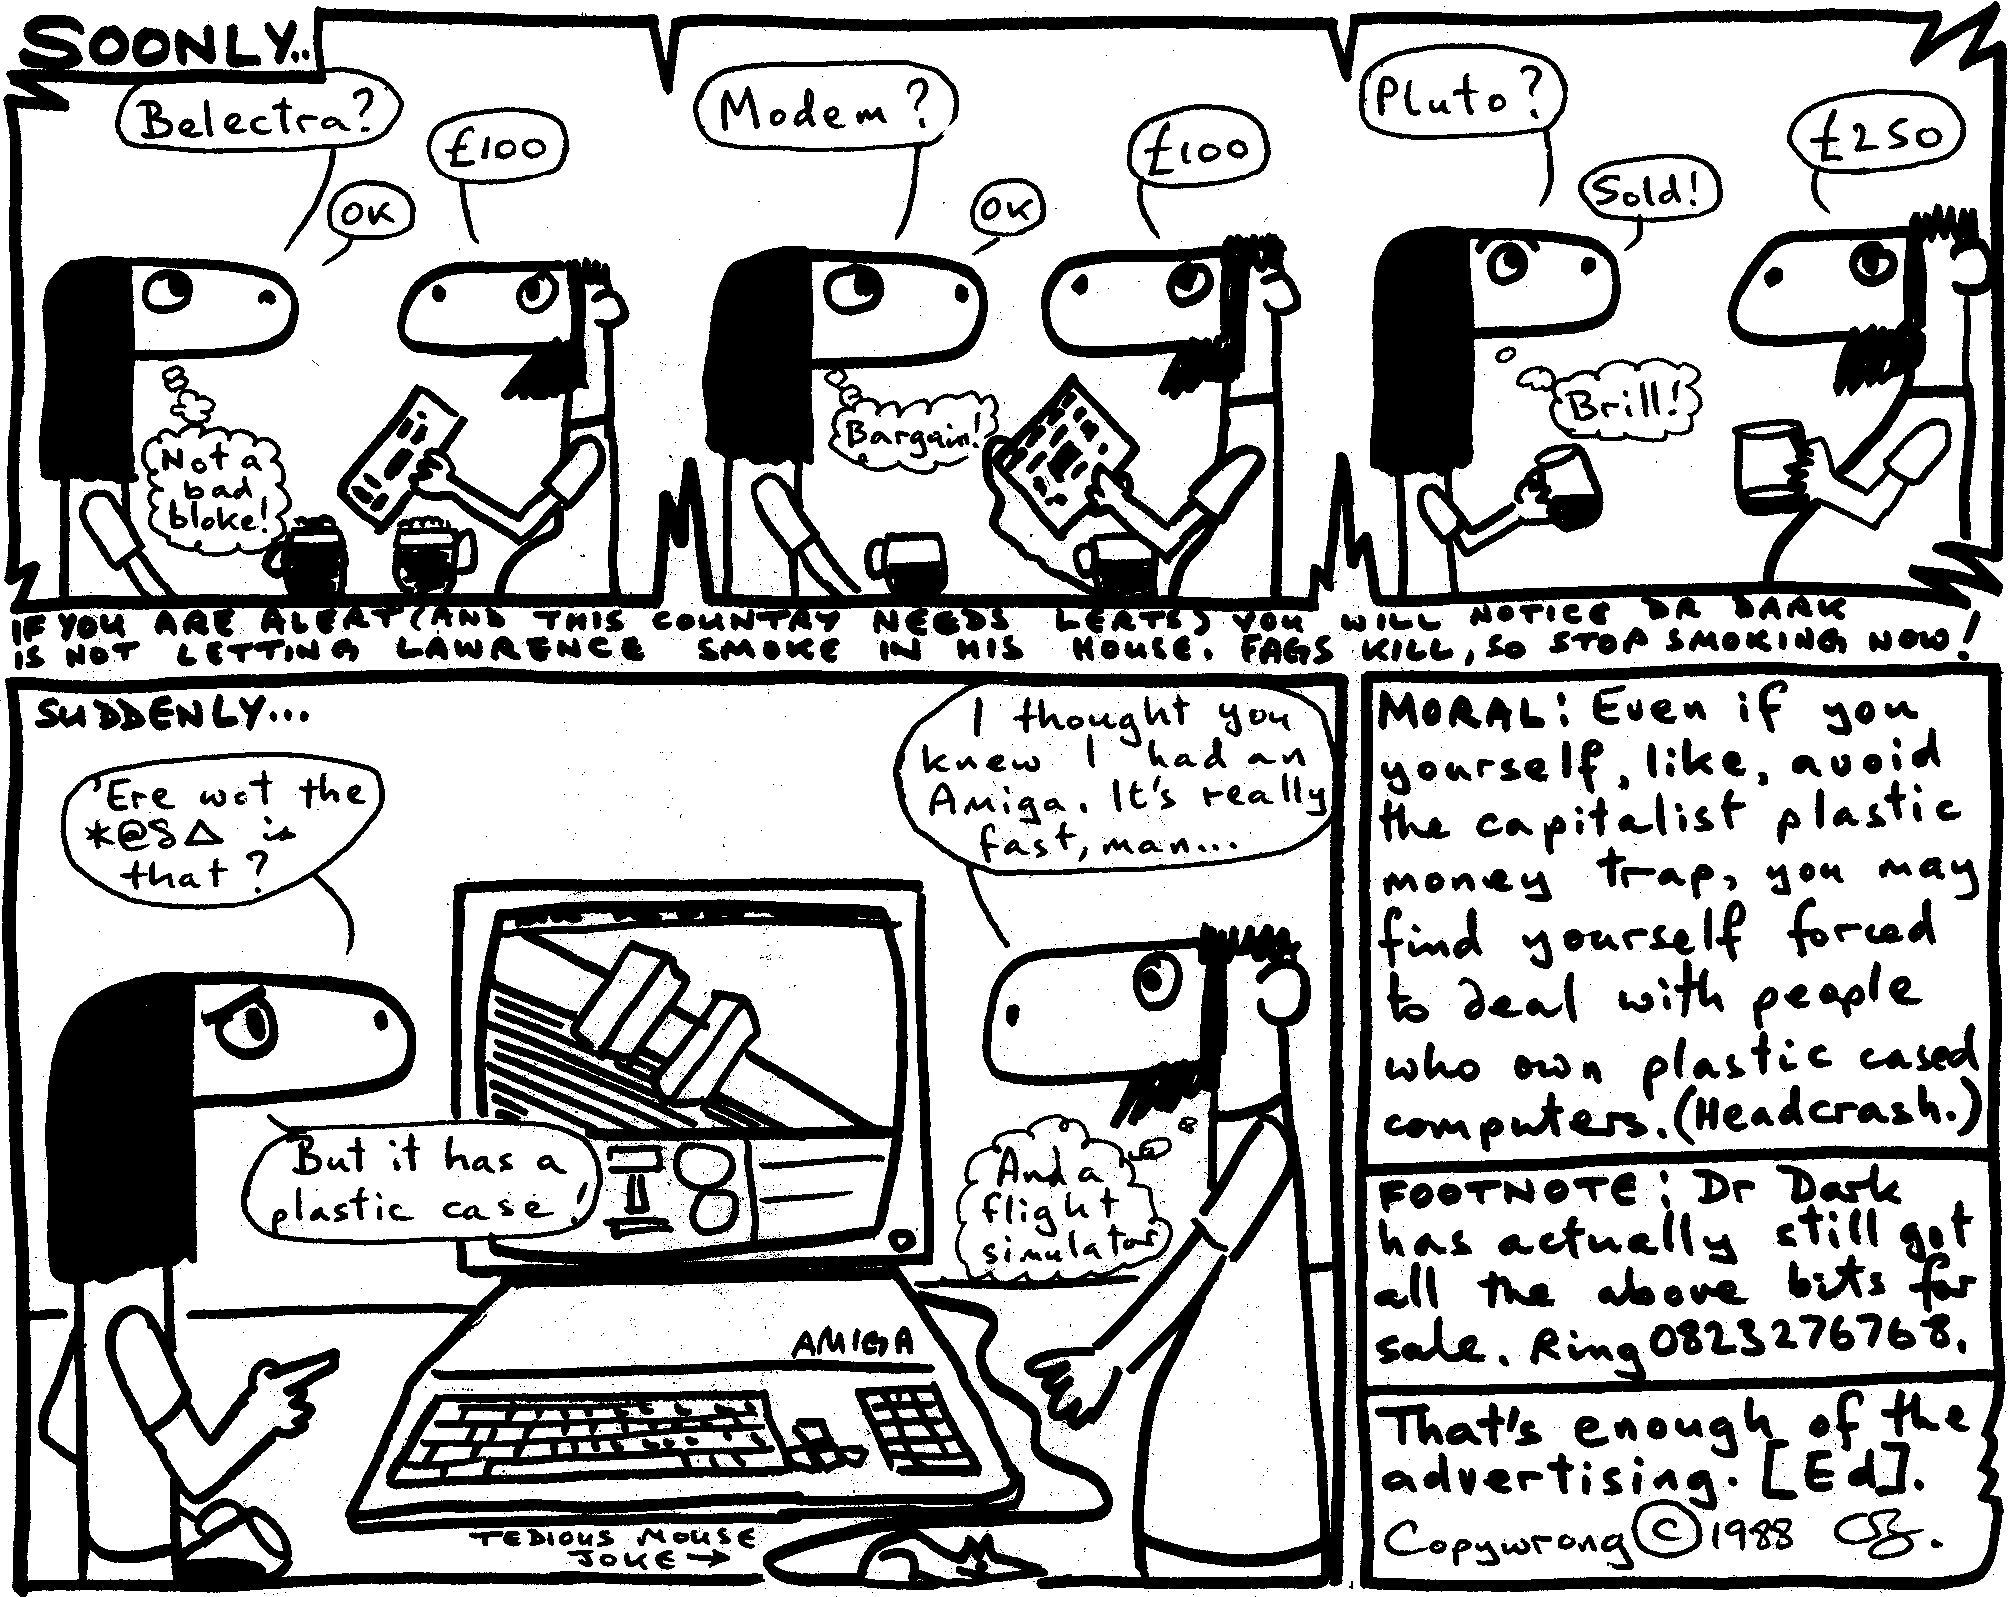 SOONLY...
Belectra?
£100
OK
Not a
bad
bloke!
Modem?
£100
OK
Bargain!
Pluto?
£250
Sold!
Brill!
IF YOU ARE ALERT (AND THIS COUNTRY NEEDS LERTS) YOU WILL NOTICE DR DARK
IS NOT LETTING LAWRENCE SMOKE IN HIS HOUSE. FAGS KILL, SO STOP SMOKING NOW!
SUDDENLY...
'Ere wot the
*@§△ is
that?
I thought you
knew I had an
Amiga. It's really
fast, man...
But it has a
plastic case!
And a
flight
simulator
AMIGA
TEDIOUS MOUSE
JOKE →
MORAL: Even if you
yourself, like, avoid
the capitalist plastic
money trap, you may
find yourself forced
to deal with people
who own plastic cased
computers. (Headcrash.)
FOOTNOTE: Dr Dark
has actually still got
all the above bits for
sale. Ring 0823276768.
That's enough of the
advertising. [Ed].
Copywrong © 1988